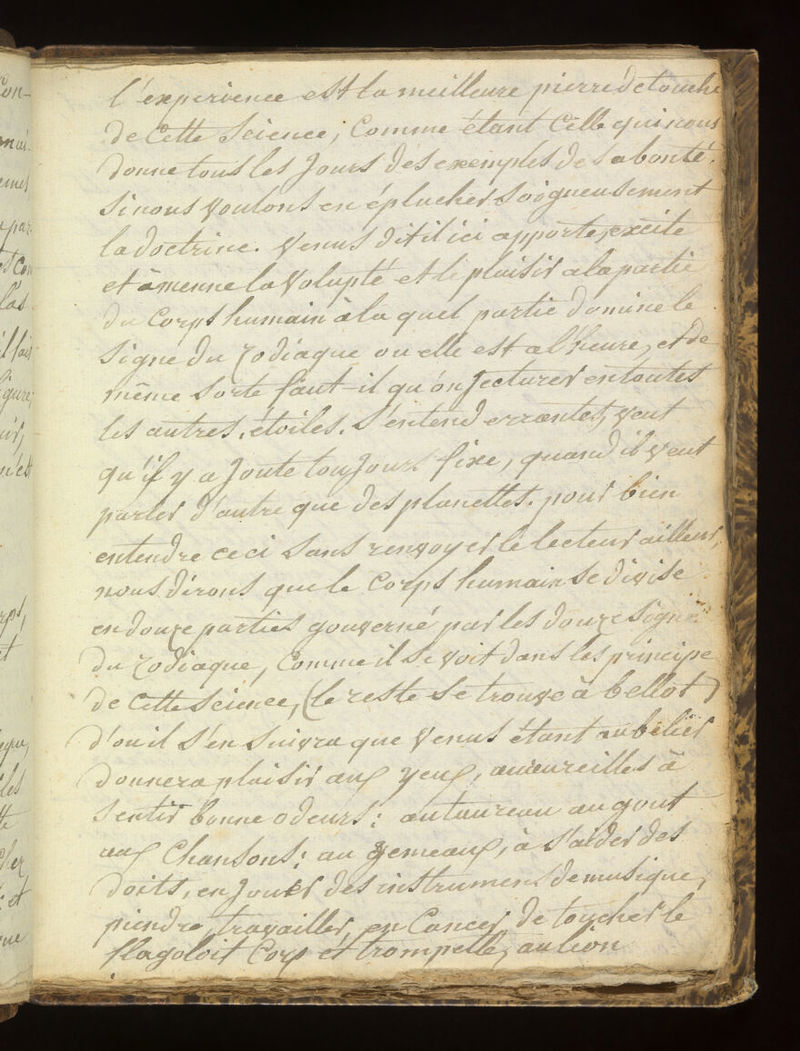 l'experience est la meilleure pierre de touche
de Cette Science, Comme étant Celle qui nous
donne tous les Jours des exemples de sa bonté.
si nous voulons en éplucher soigneusement
la doctrine. Venus dit il ici apporte, excite
et âmenne la Volupté et le plaisir a la partie
du Corps humain à la quel partie domine le
signe du Zodiaque ou elle est al'heure, et de
même sorte faut-il qu'on Jecturer en toutes
les autres étoiles. S'entend errantes, veut
qu'il y a Joute toujours fixe, quand il veut
parler d'autre que des planettes. pour bien
entendre ceci sans renvoyer le lecteur ailleurs,
nous dirons que le Corps humain se divise
en douze parties gouverné par les douze signe
du Zodiaque, Comme il se voit dans les principe
de Cette Science, (le reste se trouve à bellot)
d'ou il s'en suivra que Venus étant au bélier
donnera plaisir aux yeux, aux oreilles à
sentir bonne odeurs: au taureau au gout
aux Chansons: au gemeaux, à s'aider des
doits, en Jouer des instrumens de musique,
piendre, travailler, en Cancer de toucher le
flagoloit Corp et trompelle, au lion